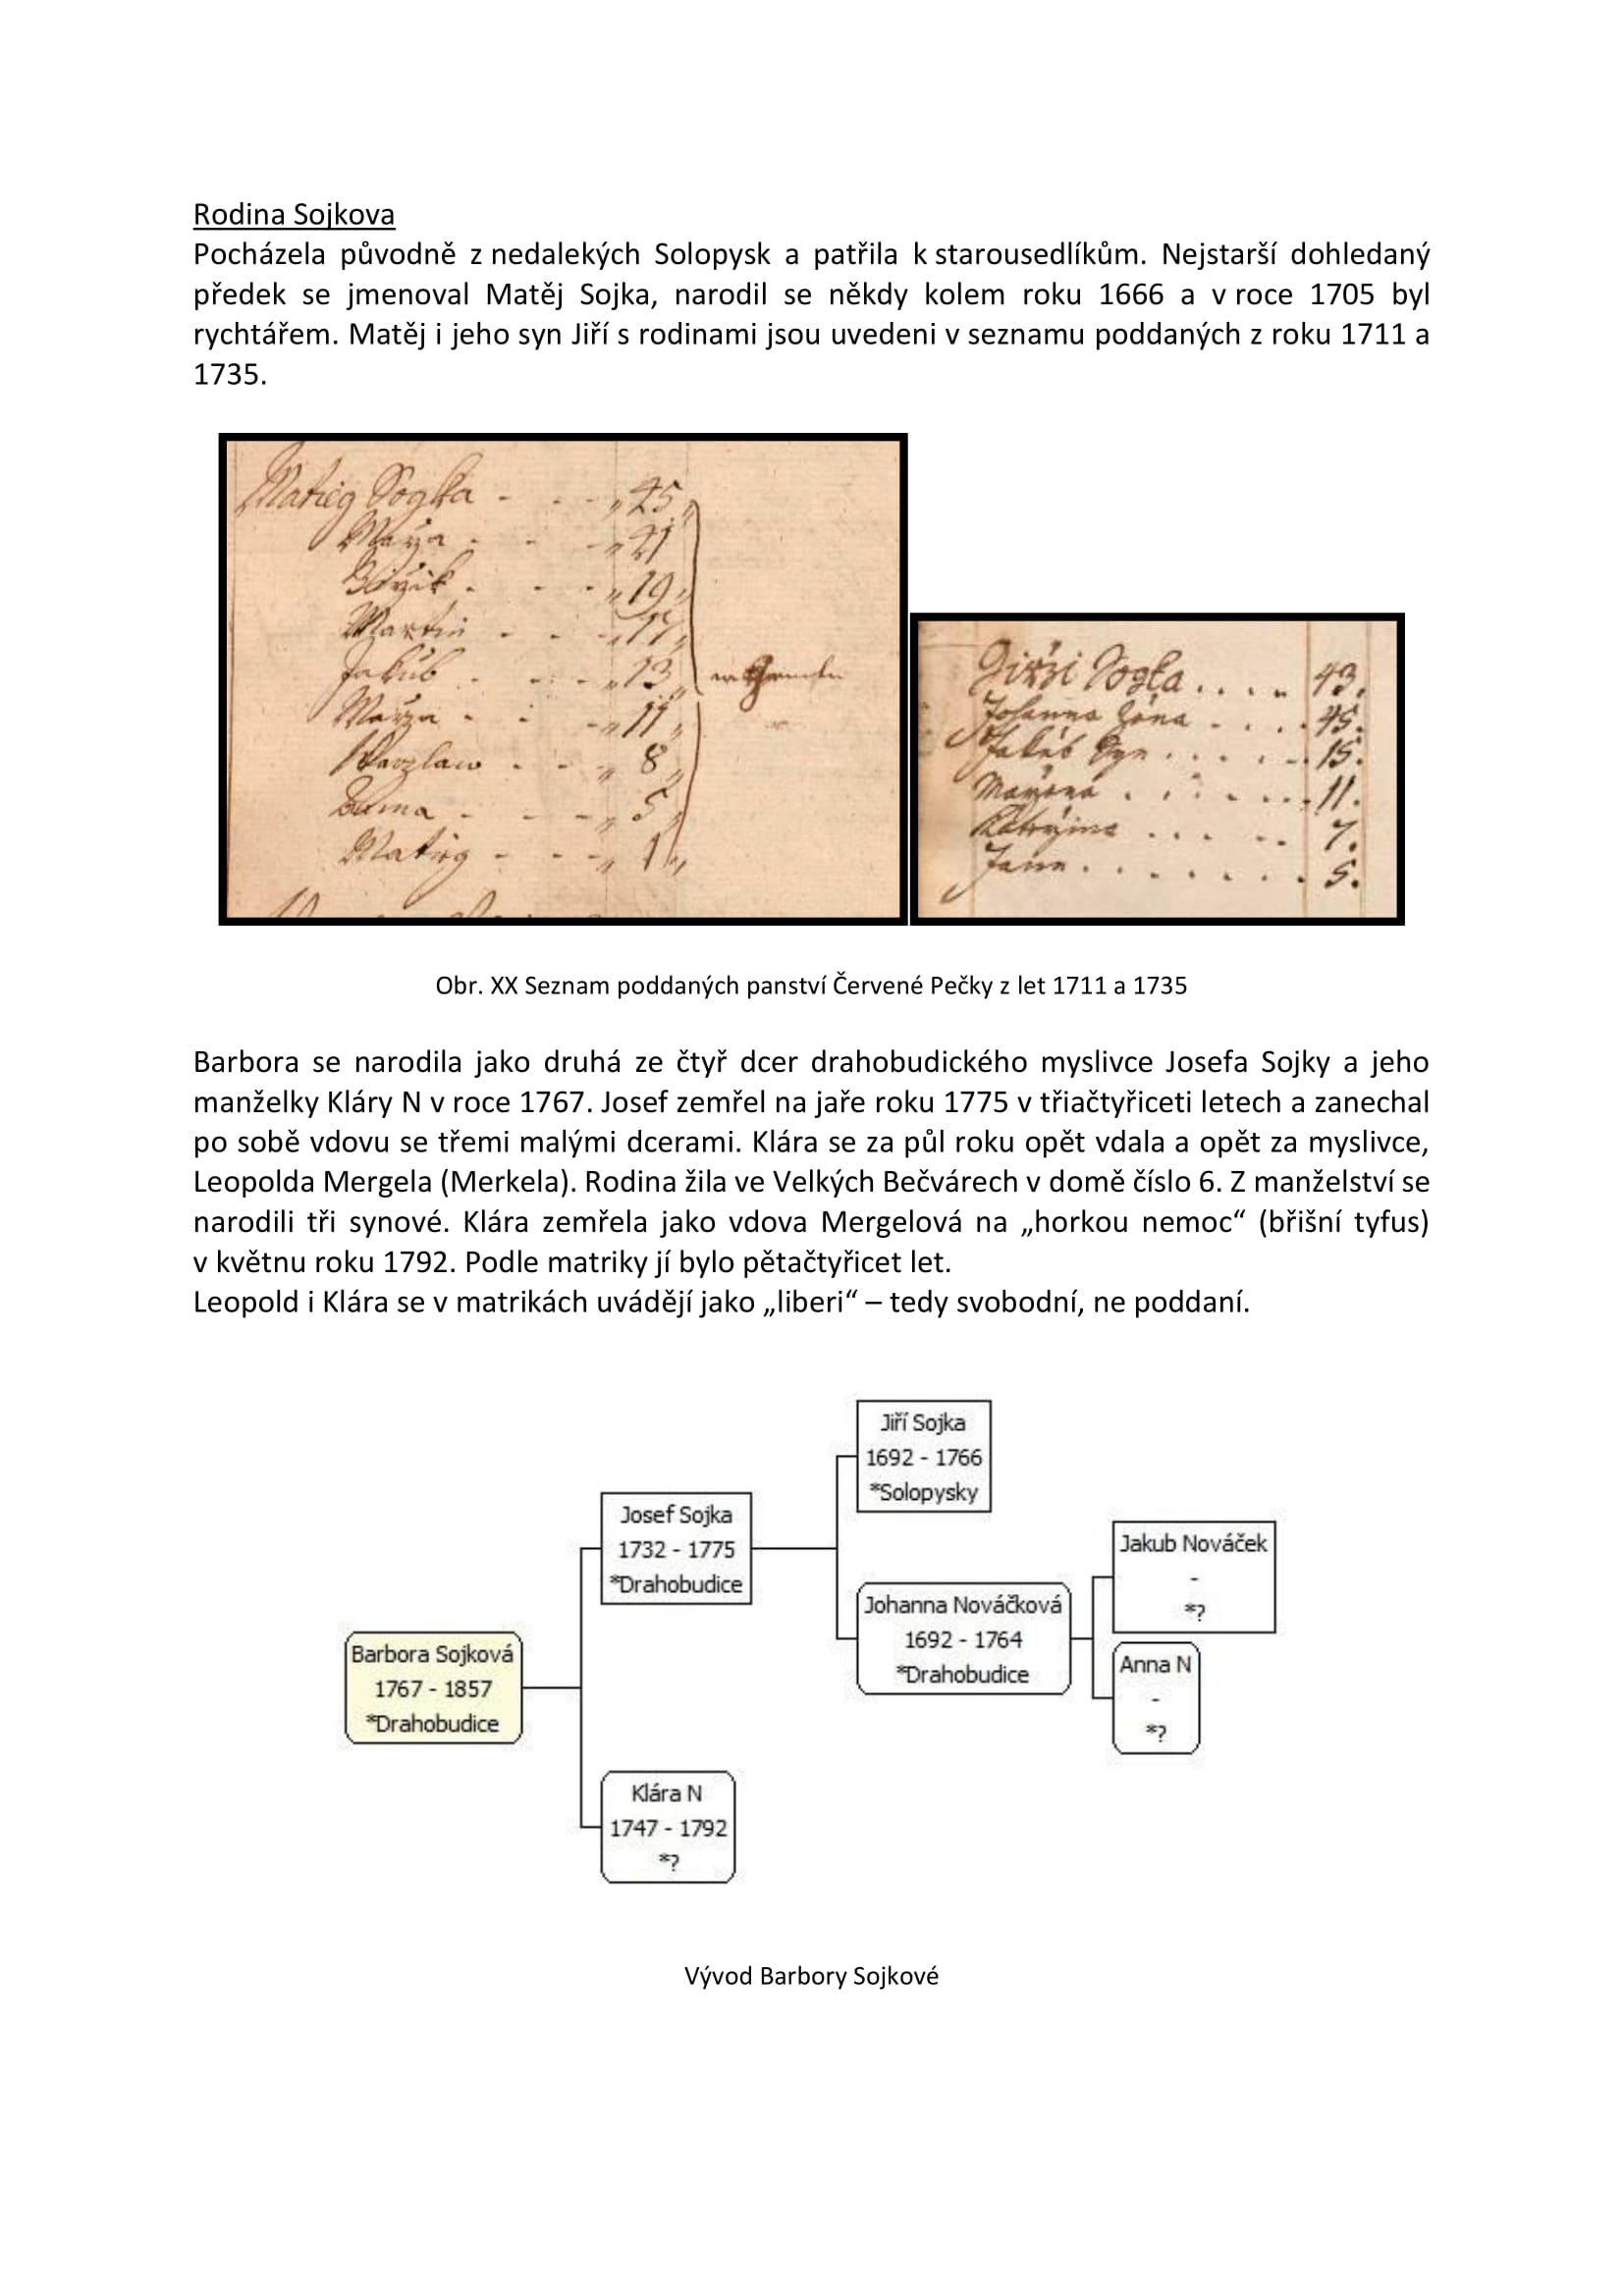 Rodina Sojkova
Pocházela původně z nedalekých Solopysk a patřila k starousedlíkům. Nejstarší dohledaný
předek se jmenoval Matěj Sojka, narodil se někdy kolem roku 1666 a v roce 1705 byl
rychtářem. Matěj i jeho syn Jiří s rodinami jsou uvedeni v seznamu poddaných z roku 1711 a
1735.
Matieg Sogka - - - „45„
- - „21
- - - „19„
Martin - - - „17„
Jakub - - - „13„
- - - „11„
Waczlaw - - - „8„
- - - „5„
Matieg - - - „1„
Girzi Sogka . . . . 43.
Johanna Zóna - . . . 45.
Jakub Syn . . . . . . 15.
. . . . . . 11.
Katrzina . . . . . 7.
Jann . . . . . . . 5.
Obr. XX Seznam poddaných panství Červené Pečky z let 1711 a 1735
Barbora se narodila jako druhá ze čtyř dcer drahobudického myslivce Josefa Sojky a jeho
manželky Kláry N v roce 1767. Josef zemřel na jaře roku 1775 v třiačtyřiceti letech a zanechal
po sobě vdovu se třemi malými dcerami. Klára se za půl roku opět vdala a opět za myslivce,
Leopolda Mergela (Merkela). Rodina žila ve Velkých Bečvárech v domě číslo 6. Z manželství se
narodili tři synové. Klára zemřela jako vdova Mergelová na „horkou nemoc“ (břišní tyfus)
v květnu roku 1792. Podle matriky jí bylo pětačtyřicet let.
Leopold i Klára se v matrikách uvádějí jako „liberi“ – tedy svobodní, ne poddaní.
Jiří Sojka
1692 - 1766
*Solopysky
Josef Sojka
1732 - 1775
*Drahobudice
Jakub Nováček
-
*?
Johanna Nováčková
1692 - 1764
*Drahobudice
Barbora Sojková
1767 - 1857
*Drahobudice
Anna N
-
*?
Klára N
1747 - 1792
*?
Vývod Barbory Sojkové